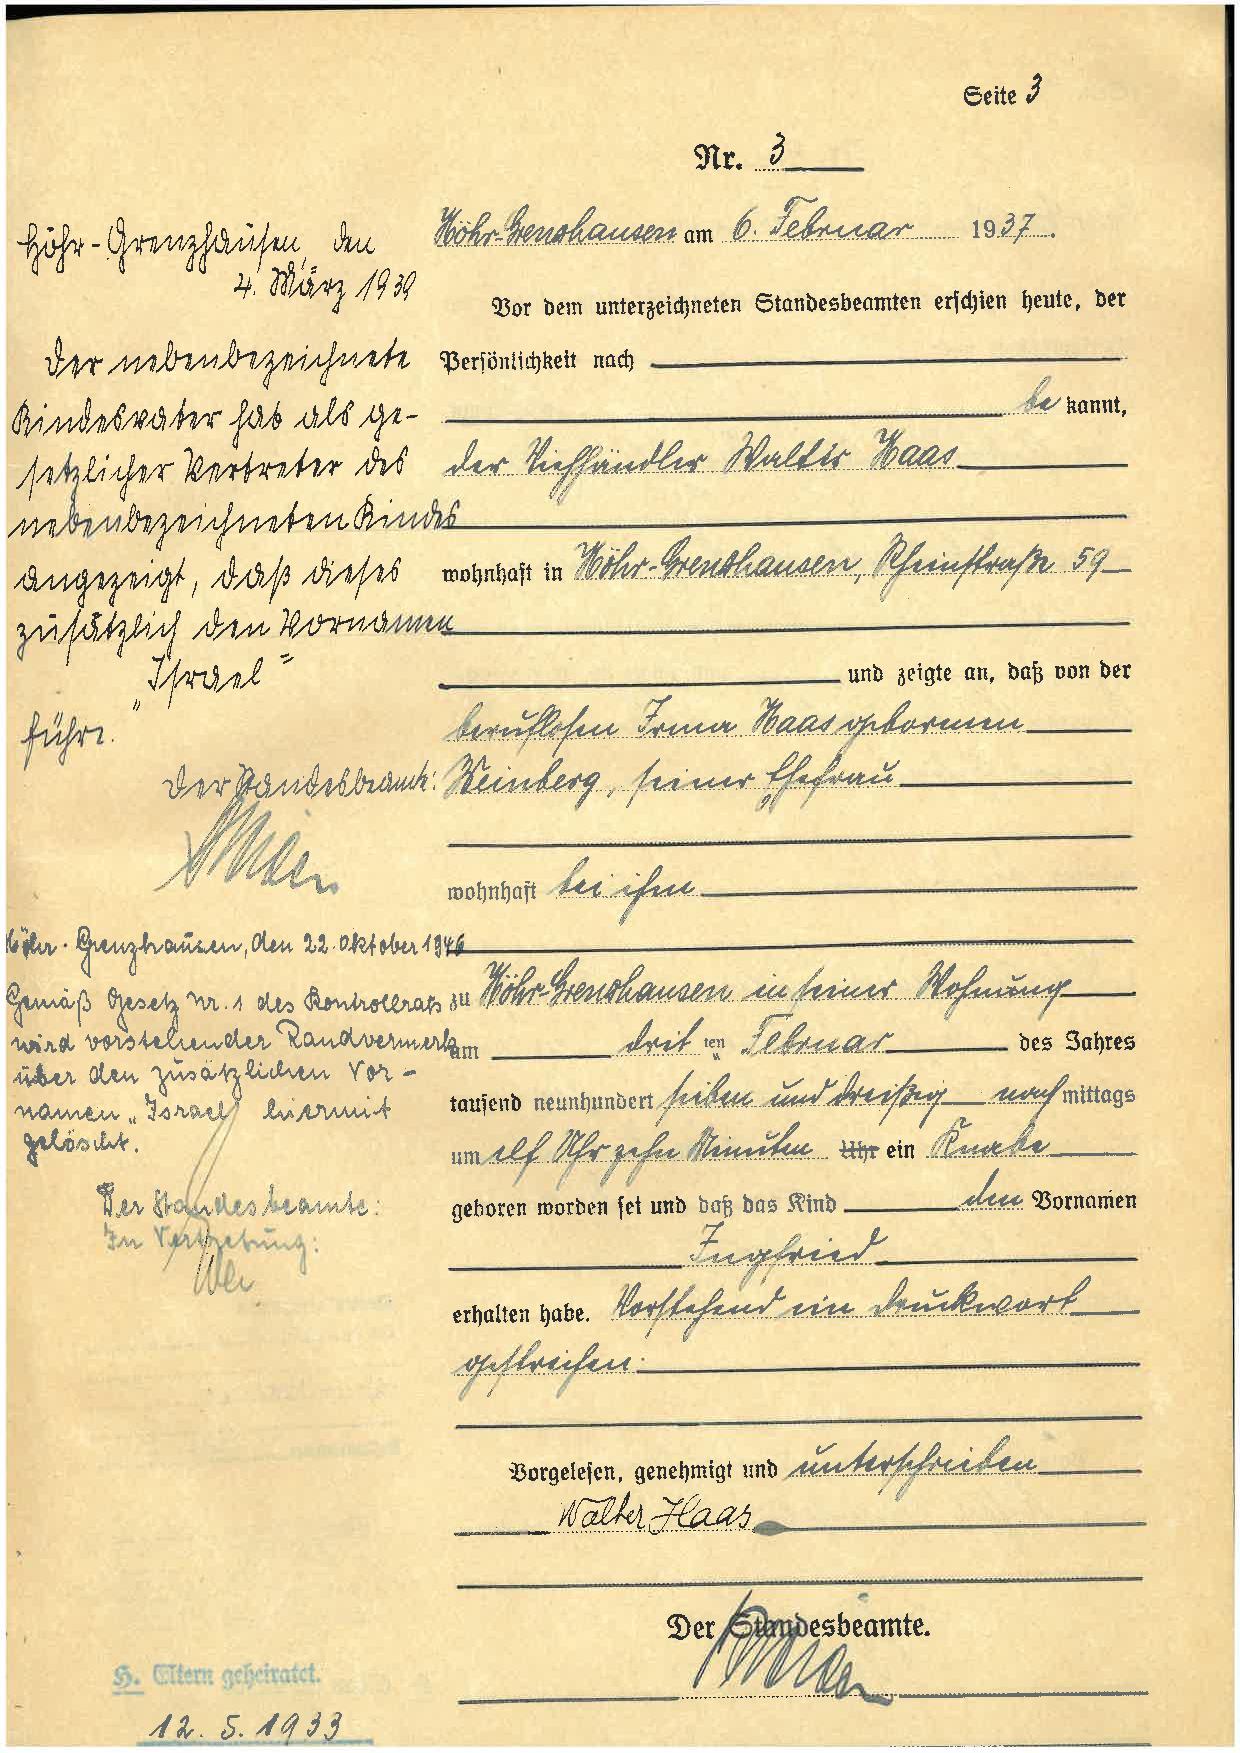 Seite 3
Nr. 3
Höhr-Grenzhausen am 6. Februar 1937.
Vor dem unterzeichneten Standesbeamten erschien heute, der
Persönlichkeit nach
be kannt,
der Viehhändler Walter Haas
wohnhaft in Höhr-Grenzhausen, Rheinstraße 59
und zeigte an, daß von der
berufslosen Irma Haas geborenen
Weinberg, seiner Ehefrau
wohnhaft bei ihm
zu Höhr-Grenzhausen in seiner Wohnung
am drit ten Februar des Jahres
tausend neunhundert sieben und dreißig nach mittags
um elf Uhr zehn Minuten Uhr ein Knabe
geboren worden sei und daß das Kind den Vornamen
Ingfried
erhalten habe. Vorstehend ein Druckwort
gestrichen.
Vorgelesen, genehmigt und unterschrieben
Walter Haas
Der Standesbeamte.
Höhr-Grenzhausen, den
4. März 1939
Der nebenbezeichnete
Kindesvater hat als ge-
setzlicher Vertreter des
nebenbezeichneten Kindes
angezeigt, daß dieses
zusätzlich den Vornamen
„Israel"
führe.
Der Standesbeamte:
Höhr-Grenzhausen, den 22. Oktober 1946
Gemäß Gesetz Nr. 1 des Kontrollrats
wird vorstehender Randvermerk
über den zusätzlichen Vor-
namen „Israel" hiermit
gelöscht.
Der Standesbeamte:
In Vertretung:
H. Eltern geheiratet.
12. 5. 1933